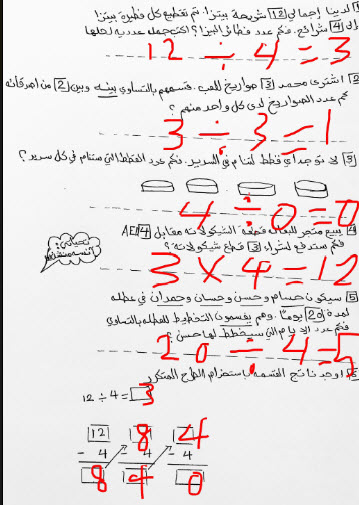 1 لدينا إجمالي 12 شريحة بيتزا. تم تقطيع كل فطيرة بيتزا
إلى 4 شرائح. فكم عدد فطائر البيتزا؟ اكتب جملة عددية لحلها
12 ÷ 4 = 3
2 اشترى محمد 3 صواريخ للعب. قسمهم بالتساوي بينه وبين 2 من أصدقائه
كم عدد الصواريخ لدى كل واحد منهم؟
3 ÷ 3 = 1
3 لا توجد أي قطط لتنام في السرير. فكم عدد القطط التي ستنام في كل سرير؟
4 ÷ 0 = 0
4 يبيع متجر للبقالة قطعة الشيكولاته مقابل AED 4
فكم ستدفع لشراء 3 قطع شيكولاته؟
3 X 4 = 12
تحياتي:
5 سيكون حسام وحسن وحسان وحمدان في عطله
لمدة 20 يومًا. وهم يقسمون التخطيط للعطله بالتساوي
فكم عدد الأيام التي سيخطط لها حسن؟
20 ÷ 4 = 5
6 اوجد ناتج القسمه باستخدام الطرح المتكرر
12 ÷ 4 = 3
12 8 4
- 4 - 4 - 4
8 4 0